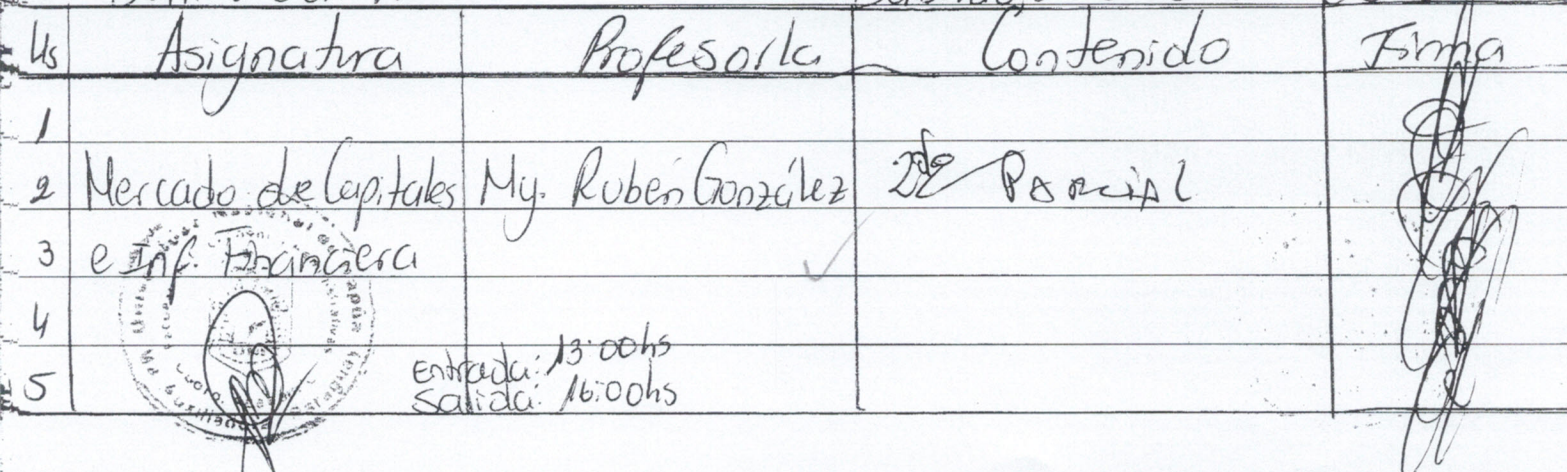 Hs Asignatura Profesor/a Contenido Firma
1
2 Mercado de Capitales My. Rubén González 2do Parcial
3 e Inf. Financiera
4
Entrada: 13:00hs
5 Salida: 16:00hs